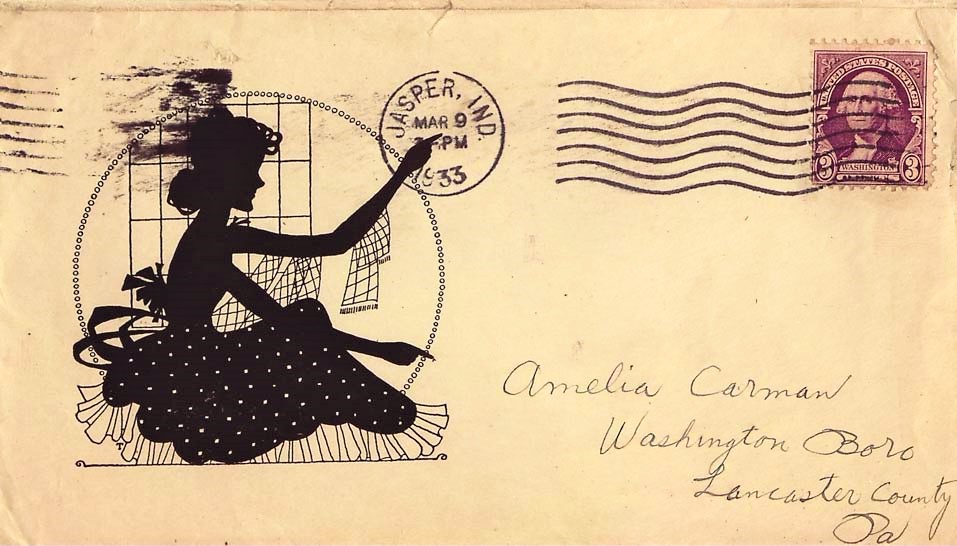 JASPER, IND.
MAR 9
PM
1933
UNITED STATES POSTAGE
3 WASHINGTON 3
Amelia Carman
Washington Boro
Lancaster County
Pa